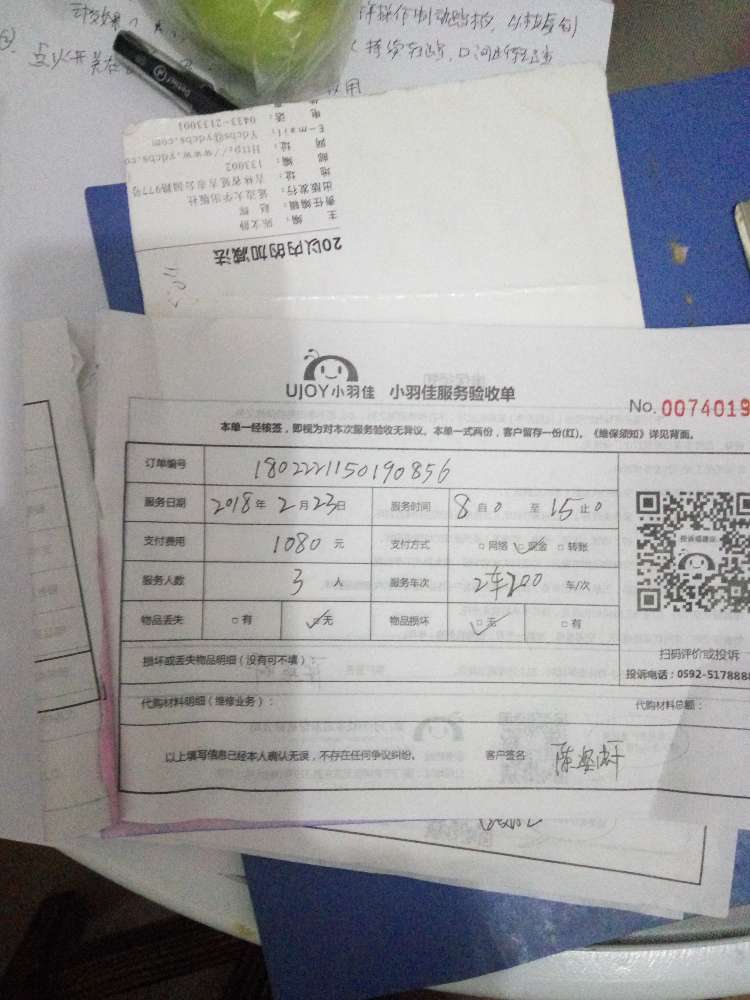 20以内的加减法
主 编：
责任编辑：赵 辉
出版发行：延边大学出版社
地 址：吉林省延吉市公园路977号
邮 编：133002
网 址：Http://www.ydcbs.co
E-mail：Ydcbs@ydcbs.com
电 话：0433-2133001
UJOY小羽佳 小羽佳服务验收单
No. 0074019
本单一经核签，即视为对本次服务验收无异议。本单一式两份，客户留存一份(红)。《维保须知》详见背面。
订单编号 1802221150190856
服务日期 2018年2月23日 服务时间 8自0至15止0
支付费用 1080元 支付方式 □网络 ☑现金 □转账
服务人数 3人 服务车次 2车200 车/次
物品丢失 □有 ☑无 物品损坏 ☑无 □有
损坏或丢失物品明细（没有可不填）：
代购材料明细（维修业务）： 代购材料总额：
以上填写信息已经本人确认无误，不存在任何争议纠纷。 客户签名：
投诉或建议
扫码评价或投诉
投诉电话：0592-5178888